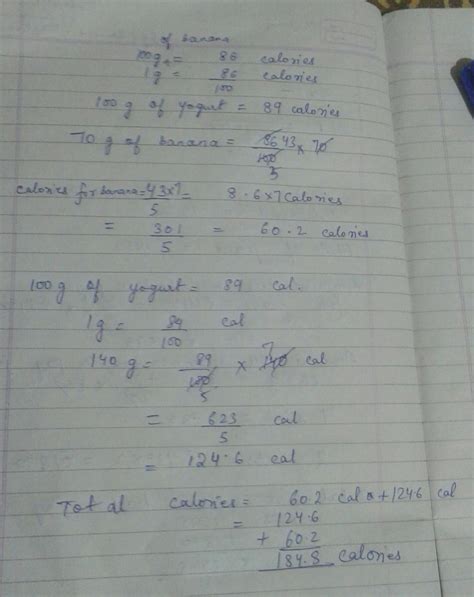 of banana
100g = 86 calories
1g = 86/100 calories
100 g of yogurt = 89 calories
70 g of banana = 86 43/100 5 × 70
calories for banana = 43×7/5 = 8.6×7 calories
= 301/5 = 60.2 calories
100 g of yogurt = 89 cal.
1g = 89/100 cal
140 g = 89/100 5 × 140 7 cal
= 623/5 cal
= 124.6 cal
Total calories = 60.2 cal + 124.6 cal
= 124.6
+ 60.2
184.8 calories